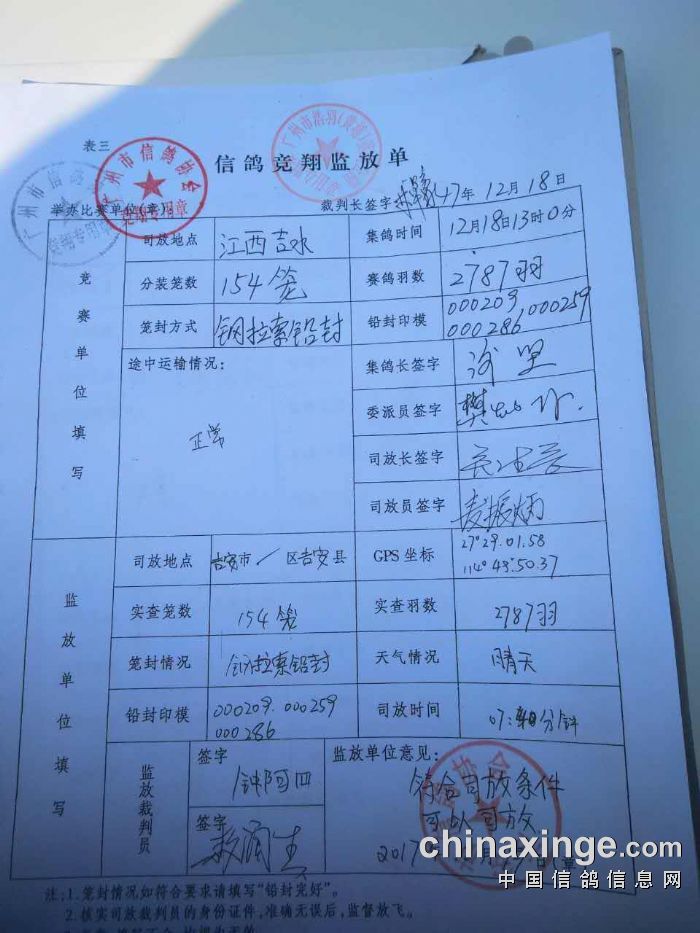 表三
信鸽竞翔监放单
广州市信鸽协会
举办比赛单位(章)
裁判长签字 17年 12月 18日
竞赛单位填写
司放地点 江西吉水 集鸽时间 12月18日13时0分
分装笼数 154笼 赛鸽羽数 2787羽
笼封方式 钢拉索铅封 铅封印模 000209,000259
000286
途中运输情况: 正常 集鸽长签字
委派员签字
司放长签字
司放员签字 麦振炳
监放单位填写
司放地点 吉安市/区吉安县 GPS 坐标 27°29.01.58
114°43.50.37
实查笼数 154笼 实查羽数 2787羽
笼封情况 钢拉索铅封 天气情况 晴天
铅封印模 000209.000259
000286 司放时间 07: 分钟
监放裁判员
签字 钟阿四
签字
监放单位意见:
符合司放条件
可以司放
2017
注:1.笼封情况如符合要求请填写“铅封完好”。
2.核实司放裁判员的身份证件,准确无误后,监督放飞。
chinaxinge.com
中国信鸽信息网